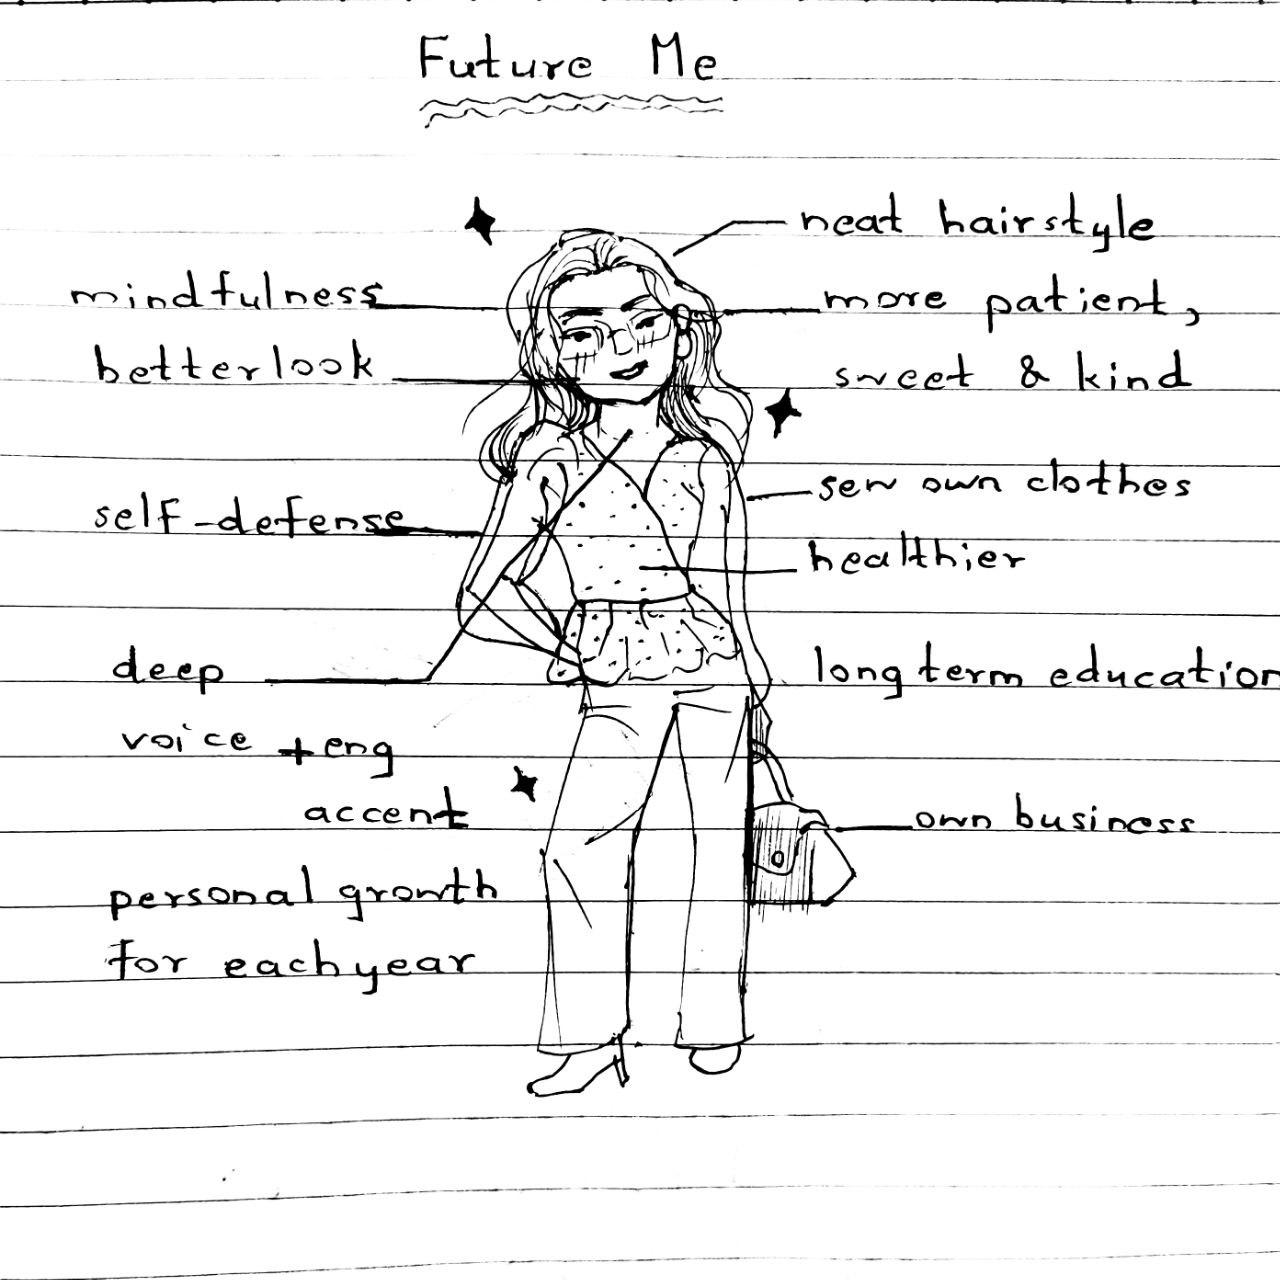 Future Me
neat hairstyle
mindfulness
more patient,
better look
sweet & kind
sew own clothes
self-defense
healthier
deep
long term education
voice + eng
accent
own business
personal growth
for each year